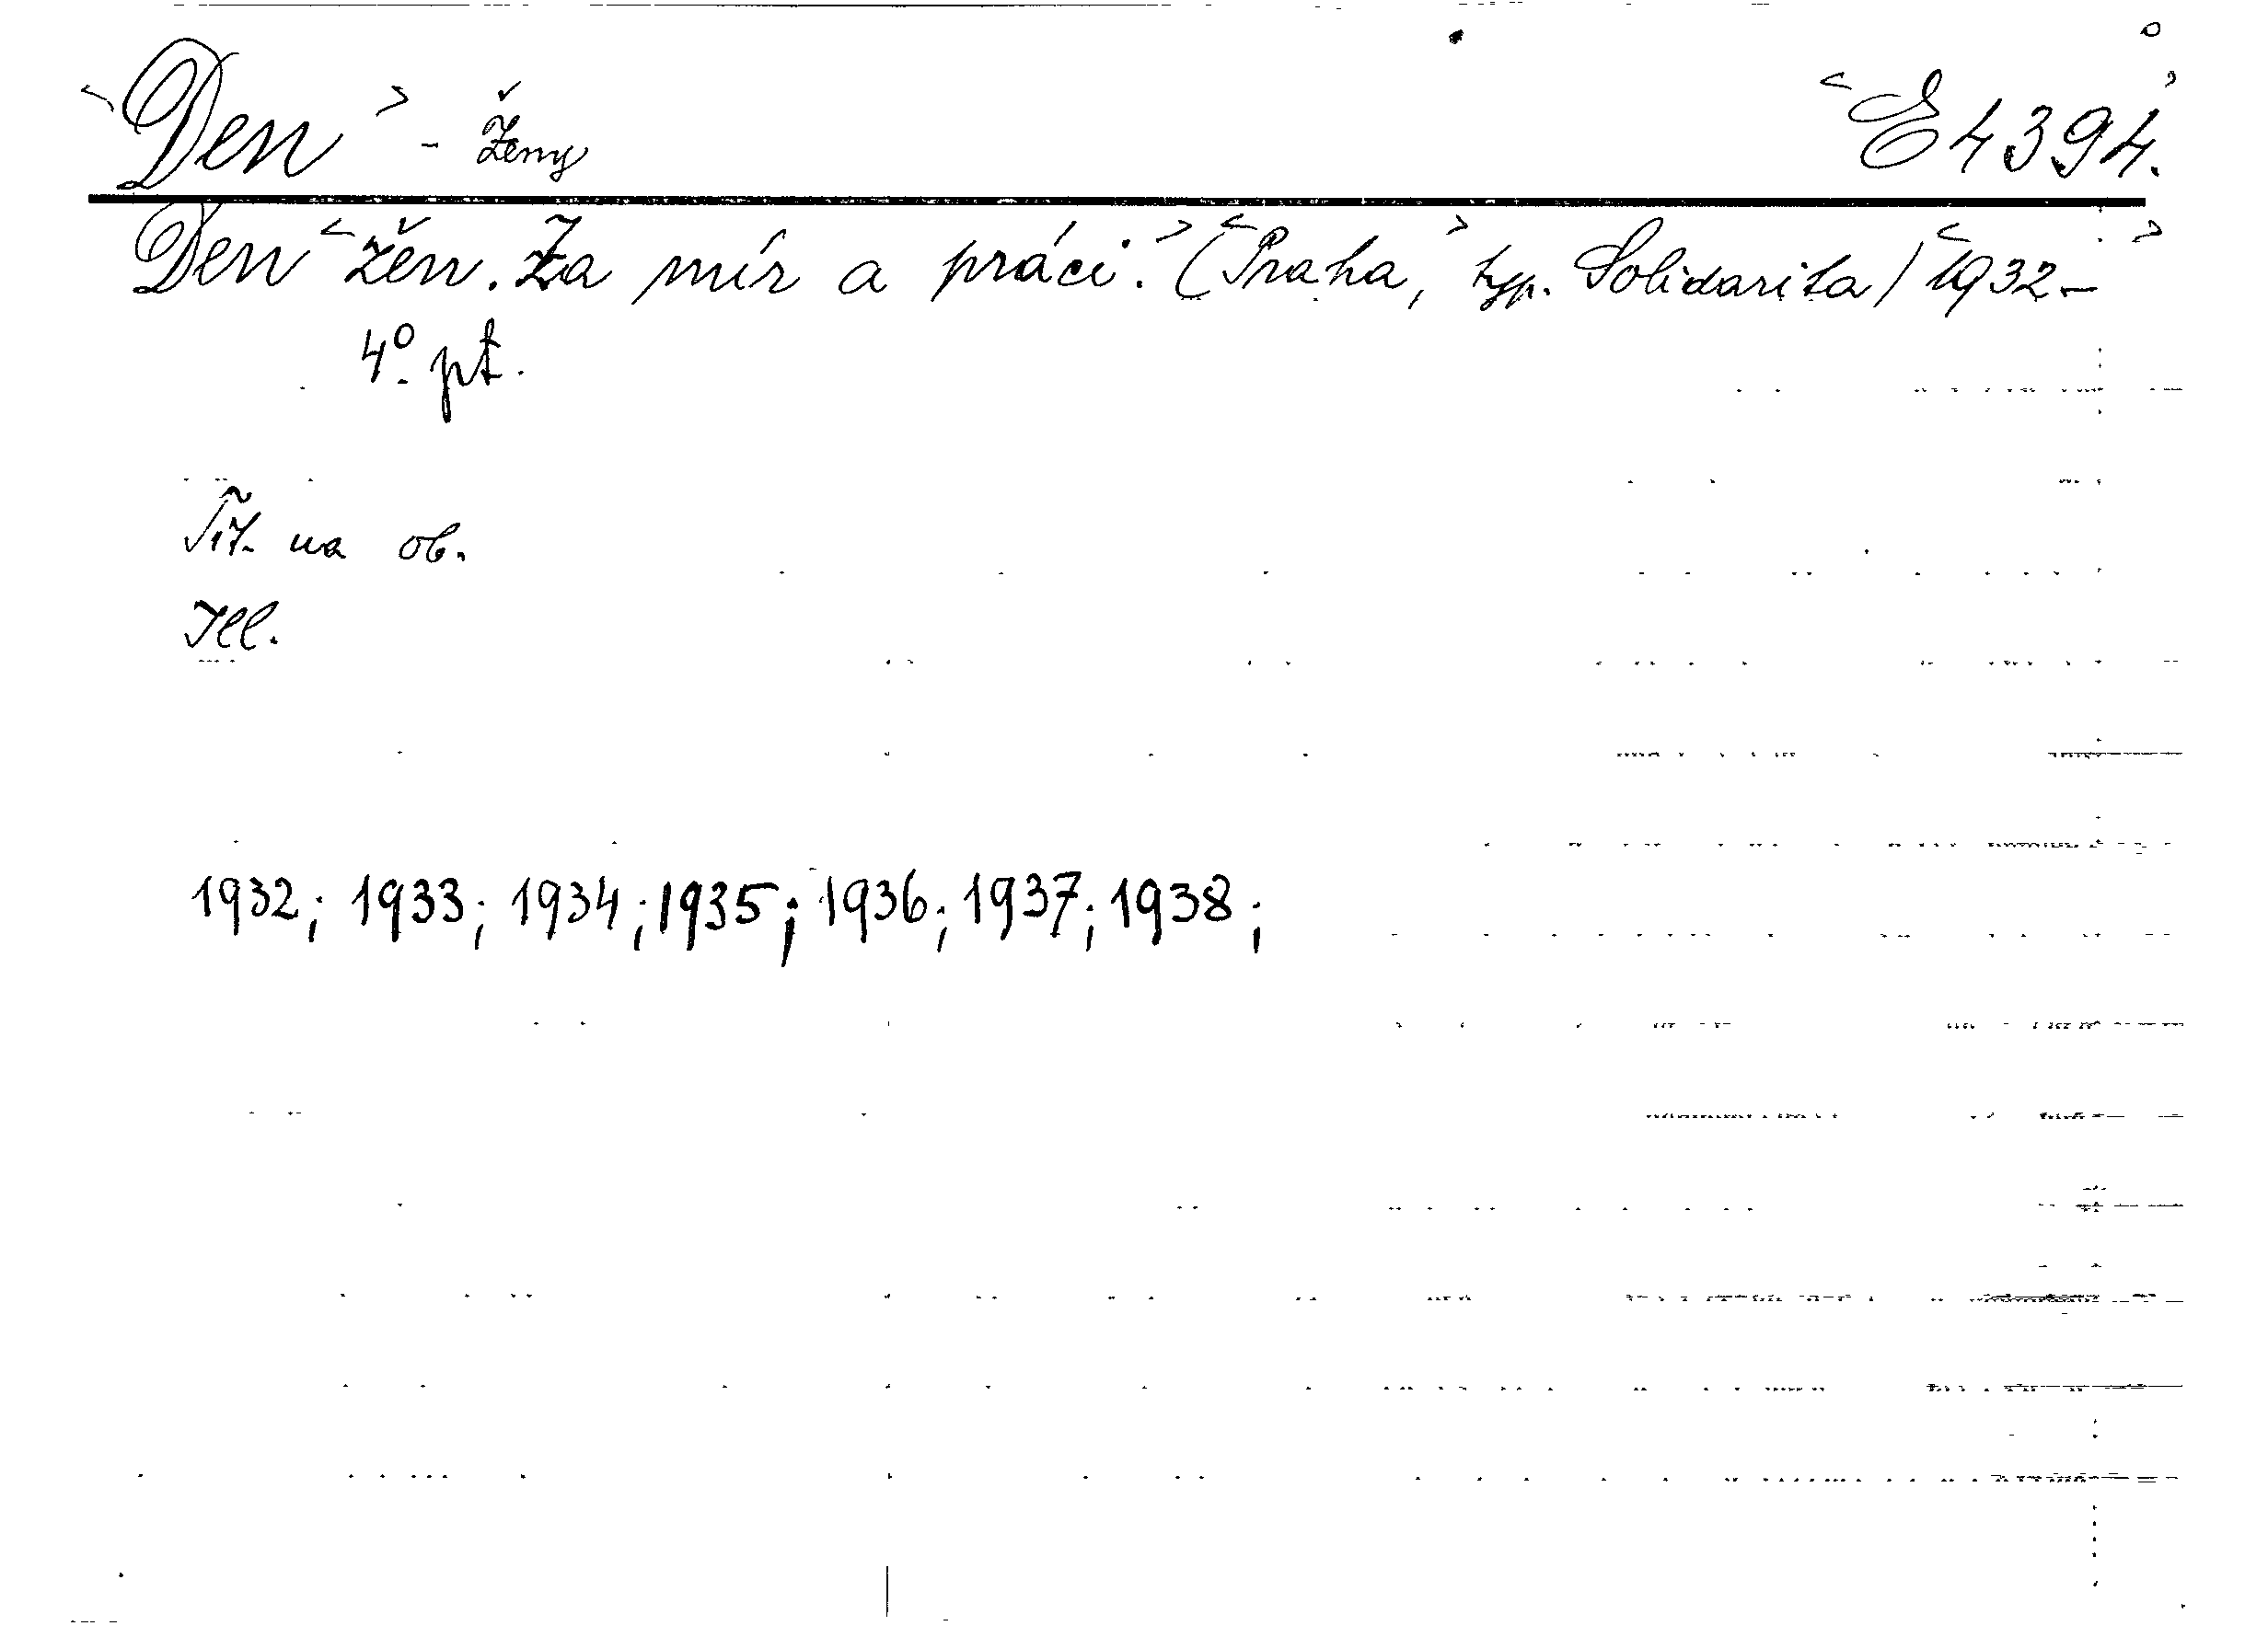 <Den> - Ženy <E 4394.>
Den <žen. Za mír a práci.> (<Praha,> typ. Solidarita) <1932->
4°. pt.
Tit. na ob.
Ill.
1932; 1933; 1934; 1935; 1936; 1937; 1938;